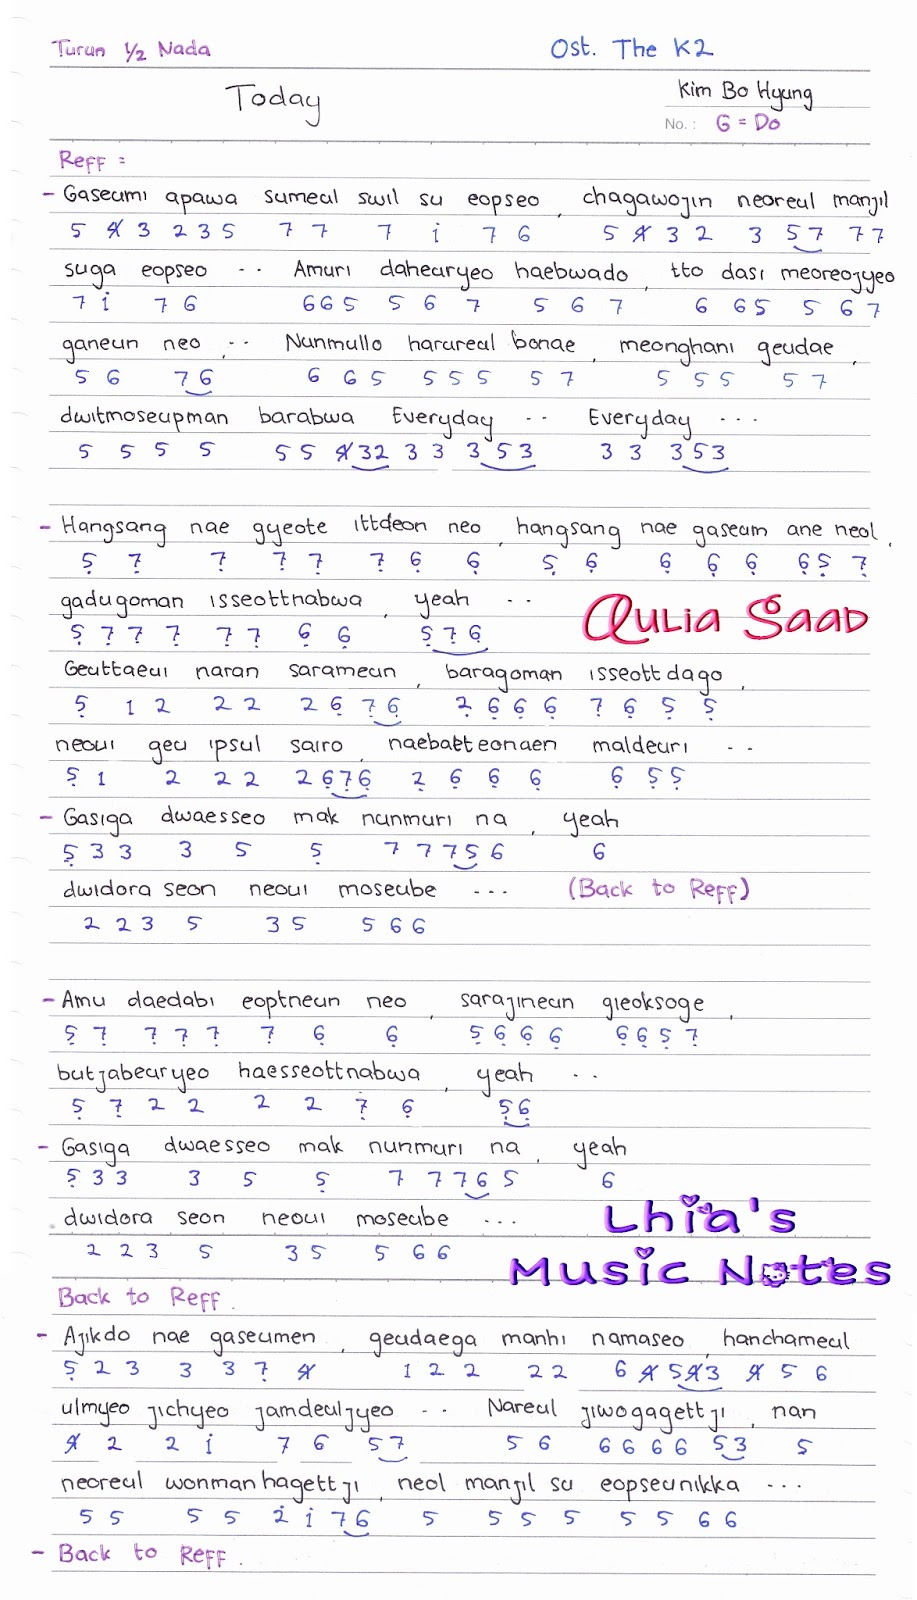 Turun 1/2 Nada
Ost. The K2
Today
Kim Bo Hyung
No.: G = Do
Reff :
- Gaseumi apawa sumeul swil su eopseo , chagawojin neoreul manjil
5 4̸ 3 2 3 5 7 7 7 i 7 6 5 4̸ 3 2 3 5 7 7 7
suga eopseo .. Amuri dahearyeo haebwado , tto dasi meoreojyeo
7 i 7 6 6 6 5 5 6 7 5 6 7 6 6 5 5 6 7
ganeun neo , .. Nunmullo harureul bonae , meonghani geudae ,
5 6 7 6 6 6 5 5 5 5 5 7 5 5 5 5 7
dwitmoseupman barabwa Everyday .. Everyday ...
5 5 5 5 5 5 4̸ 3 2 3 3 3 5 3 3 3 3 5 3
- Hangsang nae gyeote ittdeon neo , hangsang nae gaseum ane neol ,
5̣ 7̣ 7̣ 7̣ 7̣ 7̣ 6̣ 6̣ 5̣ 6̣ 6̣ 6̣ 6̣ 6̣ 5̣ 7̣
gadugoman isseottnabwa , yeah ..
5̣ 7̣ 7̣ 7̣ 7̣ 7̣ 6̣ 6̣ 5̣ 7̣ 6̣
Qulia Saad
Geuttaeui naran sarameun , baragoman isseottdago ,
5̣ 1 2 2 2 2 6̣ 7̣ 6̣ 2̣ 6̣ 6̣ 6̣ 7̣ 6̣ 5̣ 5̣
neoui geu ipsul sairo , naebatteonaen maldeuri ..
5̣ 1 2 2 2 2 6̣ 7̣ 6̣ 2̣ 6̣ 6̣ 6̣ 6̣ 5̣ 5̣
- Gasiga dwaesseo mak nunmuri na , yeah
5̣ 3 3 3 5 5̣ 7 7 7 5 6 6
dwidora seon neoui moseube ... (Back to Reff)
2 2 3 5 3 5 5 6 6
- Amu daedabi eoptneun neo , sarajineun gieoksoge ,
5̣ 7̣ 7̣ 7̣ 7̣ 7̣ 6̣ 6̣ 5̣ 6̣ 6̣ 6̣ 6̣ 6̣ 5̣ 7̣
butjabearyeo haesseottnabwa , yeah ..
5̣ 7̣ 2 2 2 2 7̣ 6̣ 5̣ 6̣
- Gasiga dwaesseo mak nunmuri na , yeah
5̣ 3 3 3 5 5̣ 7 7 7 6 5 6
dwidora seon neoui moseube ...
2 2 3 5 3 5 5 6 6
Lhia's
Music Notes
Back to Reff .
- Ajikdo nae gaseumen , geudaega manhi namaseo , hanchameul
5̣ 2 3 3 3 7̣ 4̸ 1 2 2 2 2 6 4̸ 5 4̸ 3 4̸ 5 6
ulmyeo jichyeo jamdeuljyeo .. Nareul jiwogagettji , nan
4̸ 2 2 i 7 6 5 7 5 6 6 6 6 6 5 3 5
neoreul wonmanhagettji , neol manjil su eopseunikka ...
5 5 5 5 2̇ i 7 6 5 5 5 5 5 5 6 6
- Back to Reff .